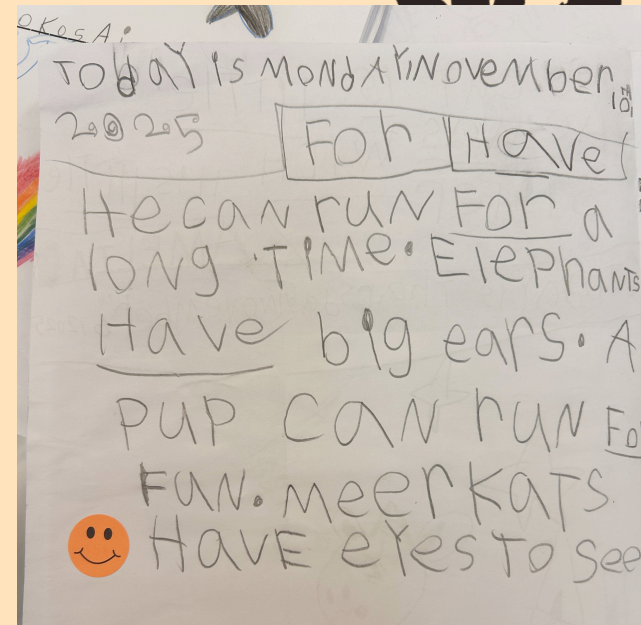 OKOSA;
TODAY is MONdAY,NovemBer, 10TH,
2025 For Have
HecaN ruN For a
long TiMe. ElephaNTs
Have big ears. A
PUP CaN ruN Fo
FUN. MeerKATs
HAVE eYes To see